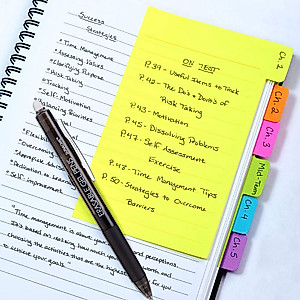 Success
Strategies
• Time Management
• Assessing Values
• Clarifying Purpose
• Risk Taking
• Tracking
• Self-Motivation
• Balancing
• Overcoming
• Self-Improvement
"Time management is about your
It's based on realizing how much
choosing the activities that are the highest
to achieve your goals."
ON TEST
P. 39 - Useful Items to Track
P. 42 - The Do's & Dont's of
Risk Taking
P. 43 - Motivation
P. 45 - Dissolving Problems
P. 47 - Self Assessment
Exercise
P. 48 - Time Management Tips
P. 50 - Strategies to Overcome
Barriers
Ch. 1
Ch. 2
Ch. 3
Mid-Term
Ch. 4
Ch. 5